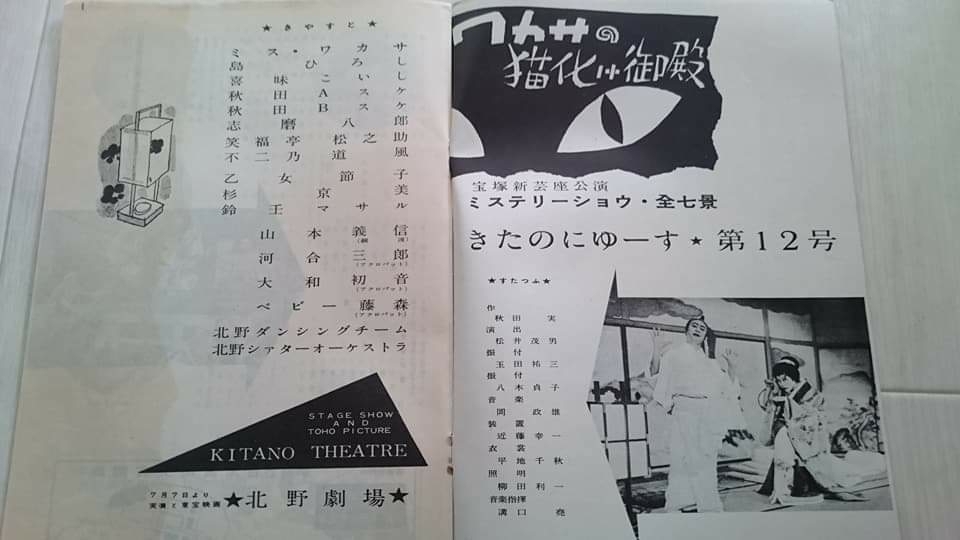 ★きやすと★
ミス・ワカサ
島ひろし
喜味こいし
秋田Aスケ
秋田Bスケ
志磨八郎
笑福亭松之助
不二乃道風
乙女節子
杉京美
鈴王マサル
山本義信
河合三郎
(アクロバット)
大和初音
(アクロバット)
ベビー藤森
(アクロバット)
北野ダンシングチーム
北野シアターオーケストラ
STAGE SHOW
AND
TOHO PICTURE
KITANO THEATRE
7月7日より
実演と東宝映画
★北野劇場★
ワカサの
猫化け御殿
宝塚新芸座公演
ミステリーショウ・全七景
きたのにゆーす★第12号
★すたつふ★
作
秋田実
演出
松井茂男
振付
玉田祐三
振付
八木貞子
音楽
岡政雄
装置
近藤幸一
衣裳
平地千秋
照明
柳田利一
音楽指揮
溝口堯